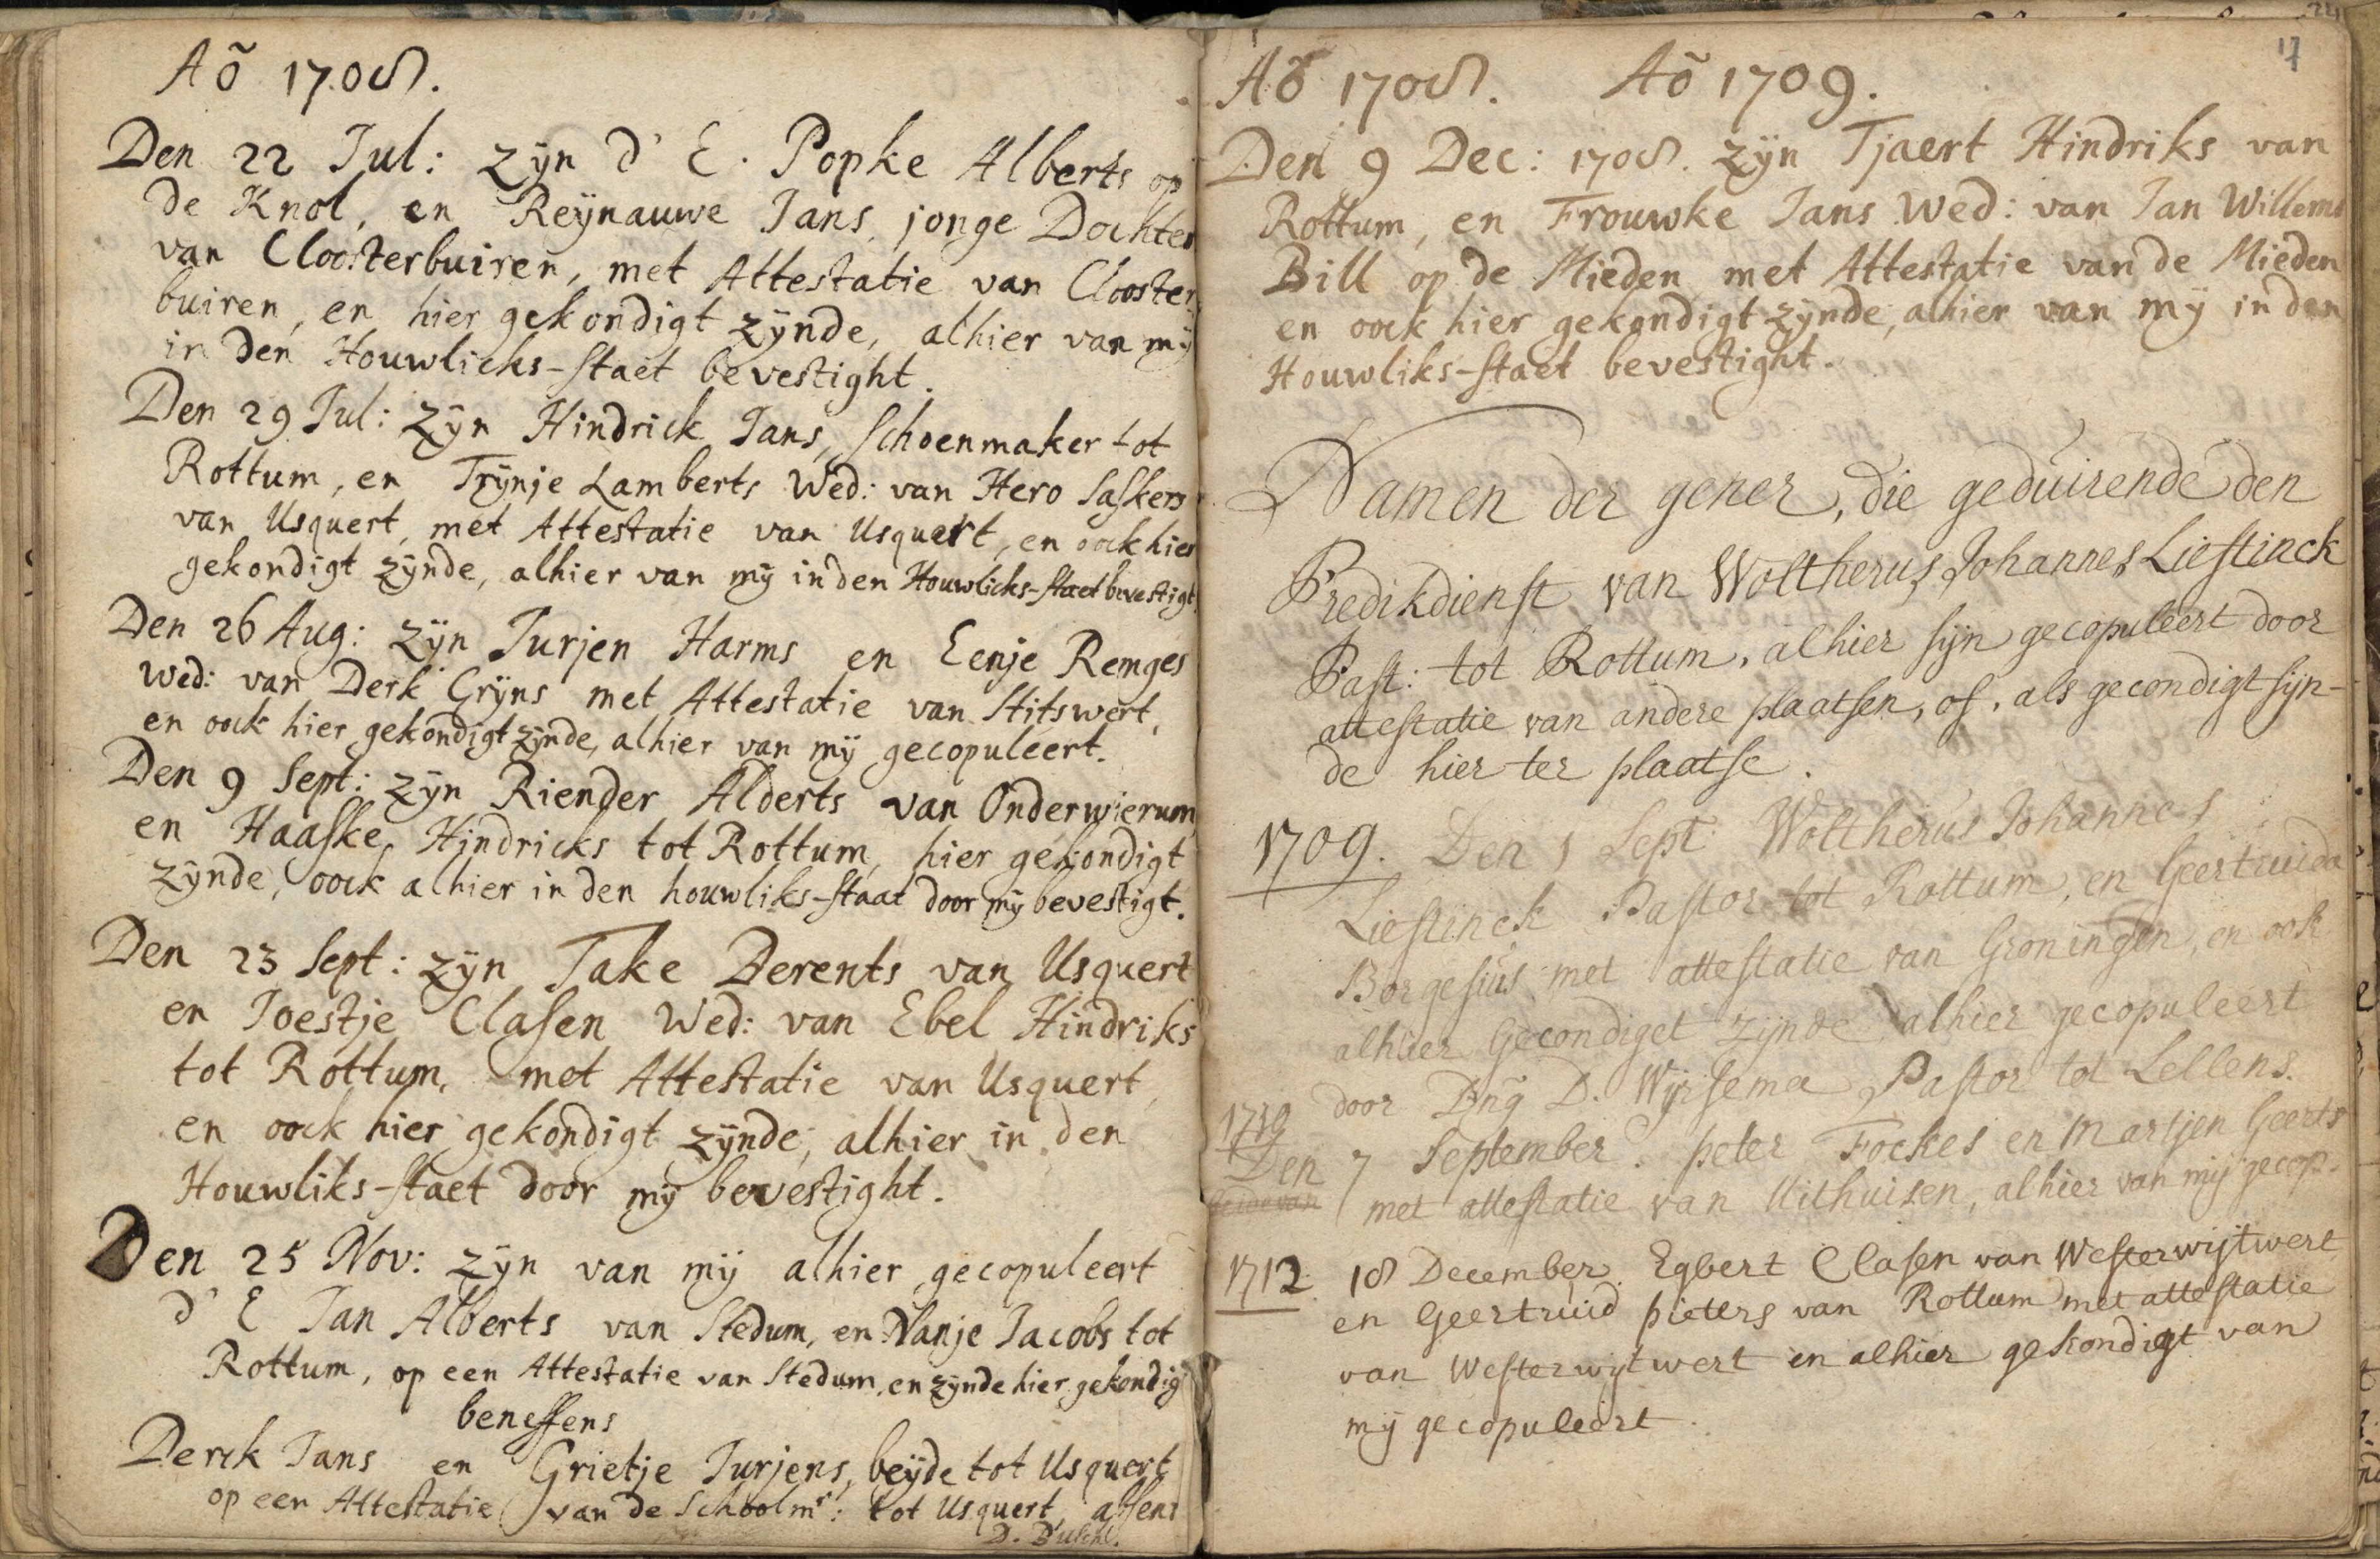 Aõ 1708.
Den 22 Jul: zÿn d' E. Popke Alberts op
de Knol, en Reÿnauwe Jans, jonge Dochter
van Cloosterbuiren, met Attestatie van Clooster
buiren, en hier gekondigt zÿnde, alhier van mÿ
in den Houwlicks-staet bevestight.
Den 29 Jul: zÿn Hindrick Jans, Schoenmaker tot
Rottum, en Trÿnje Lamberts Wed: van Hero Saskers
van Usquert, met Attestatie van Usquert, en oock hier
gekondigt zÿnde, alhier van mÿ in den Houwlicks-staet bevestigt.
Den 26 Aug: zÿn Jurjen Harms en Eenje Remges
Wed: van Derk Grÿns met Attestatie van Stitswert,
en oock hier gekondigt zÿnde, alhier van mÿ gecopuleert.
Den 9 Sept: zÿn Riender Alderts van Onderwierum,
en Haaske Hindricks tot Rottum, hier gekondigt
zÿnde, oock alhier in den houwliks-staat door mÿ bevestigt.
Den 23 Sept: zÿn Take Derents van Usquert
en Joestje Clasen Wed: van Ebel Hindriks
tot Rottum, met Attestatie van Usquert,
en oock hier gekondigt zÿnde, alhier in den
Houwliks-staet door mÿ bevestight.
Den 25 Nov: zÿn van mÿ alhier gecopuleert
d' E Jan Alberts van Stedum, en Nanje Jacobs tot
Rottum, op een Attestatie van Stedum, en zÿnde hier gekondig
beneffens
Derck Jans en Grietje Jurjens, beÿde tot Usquert
op een Attestatie van de Schoolmr: tot Usquert, absent
D. Busch.
17
Aõ 1708. Aõ 1709.
Den 9 Dec: 1708. zÿn Tjaert Hindriks van
Rottum, en Frouwke Jans Wed: van Jan Willems
Bill op de Mieden met Attestatie van de Mieden
en oock hier gekondigt zÿnde, alhier van mÿ in den
Houwliks-staet bevestight.
Namen der gener, die geduirende den
Predikdienst van Woltherus Johannes Liestinck
Past: tot Rottum, alhier sijn gecopuleert door
attestatie van andere plaatsen, of, als gecondigt sijn-
de hier ter plaatse.
1709. Den 1 Sept: Woltherus Johannes
Liestinck Pastor tot Rottum, en Geertruida
Borgesius met attestatie van Groningen, en ook
alhier Gecondiget zijnde alhier gecopuleert
door Dng D. Wijrsema Pastor tot Lellens.
1710
Den 7 September. peter Fockes en Martjen Geerts
met attestatie van Uithuisen, alhier van mij gecop.
1712. 18 December Egbert Clasen van Westerwijtwert
en Geertruid pieters van Rottum met attestatie
van Westerwijtwert en alhier gekondigt van
mij gecopuleert.